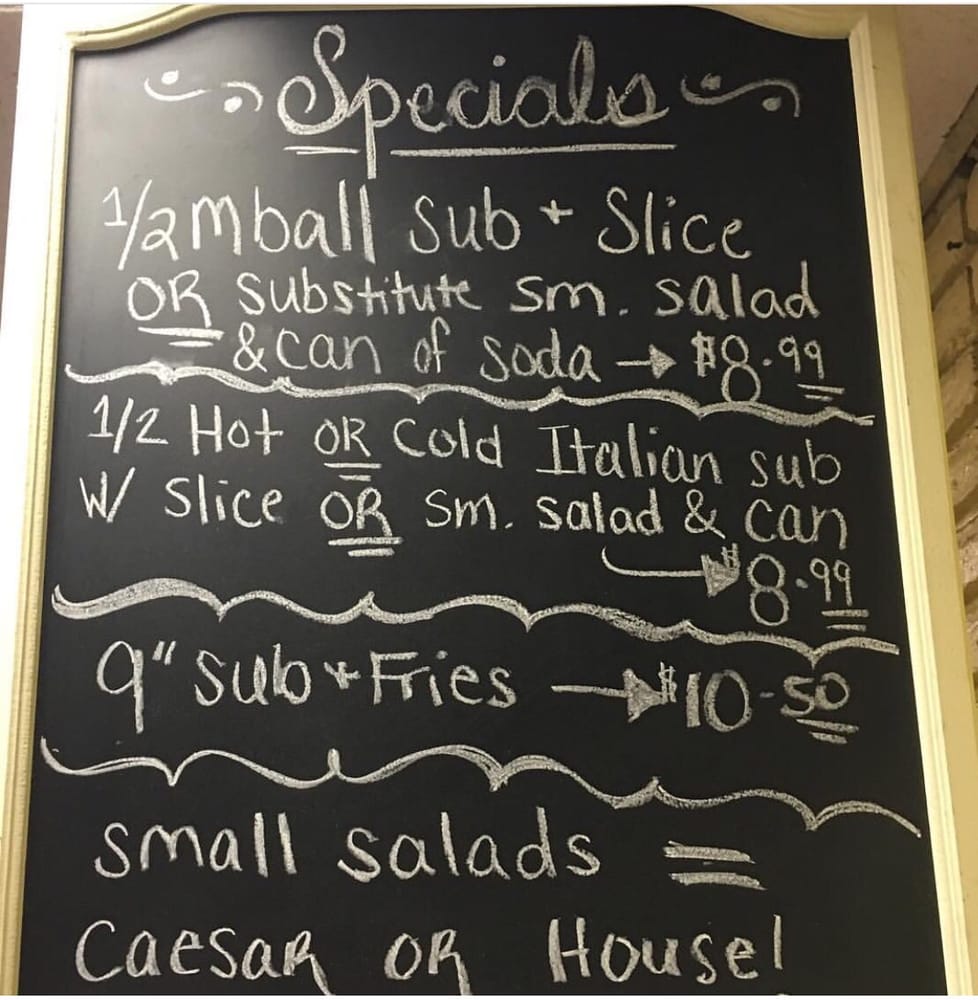 Specials
1/2 mball sub + Slice
OR substitute sm. salad
& can of soda → $8.99
1/2 Hot OR Cold Italian sub
W/ slice OR sm. salad & can
→ $8.99
9" sub + Fries → $10.50
small salads =
Caesar or House!